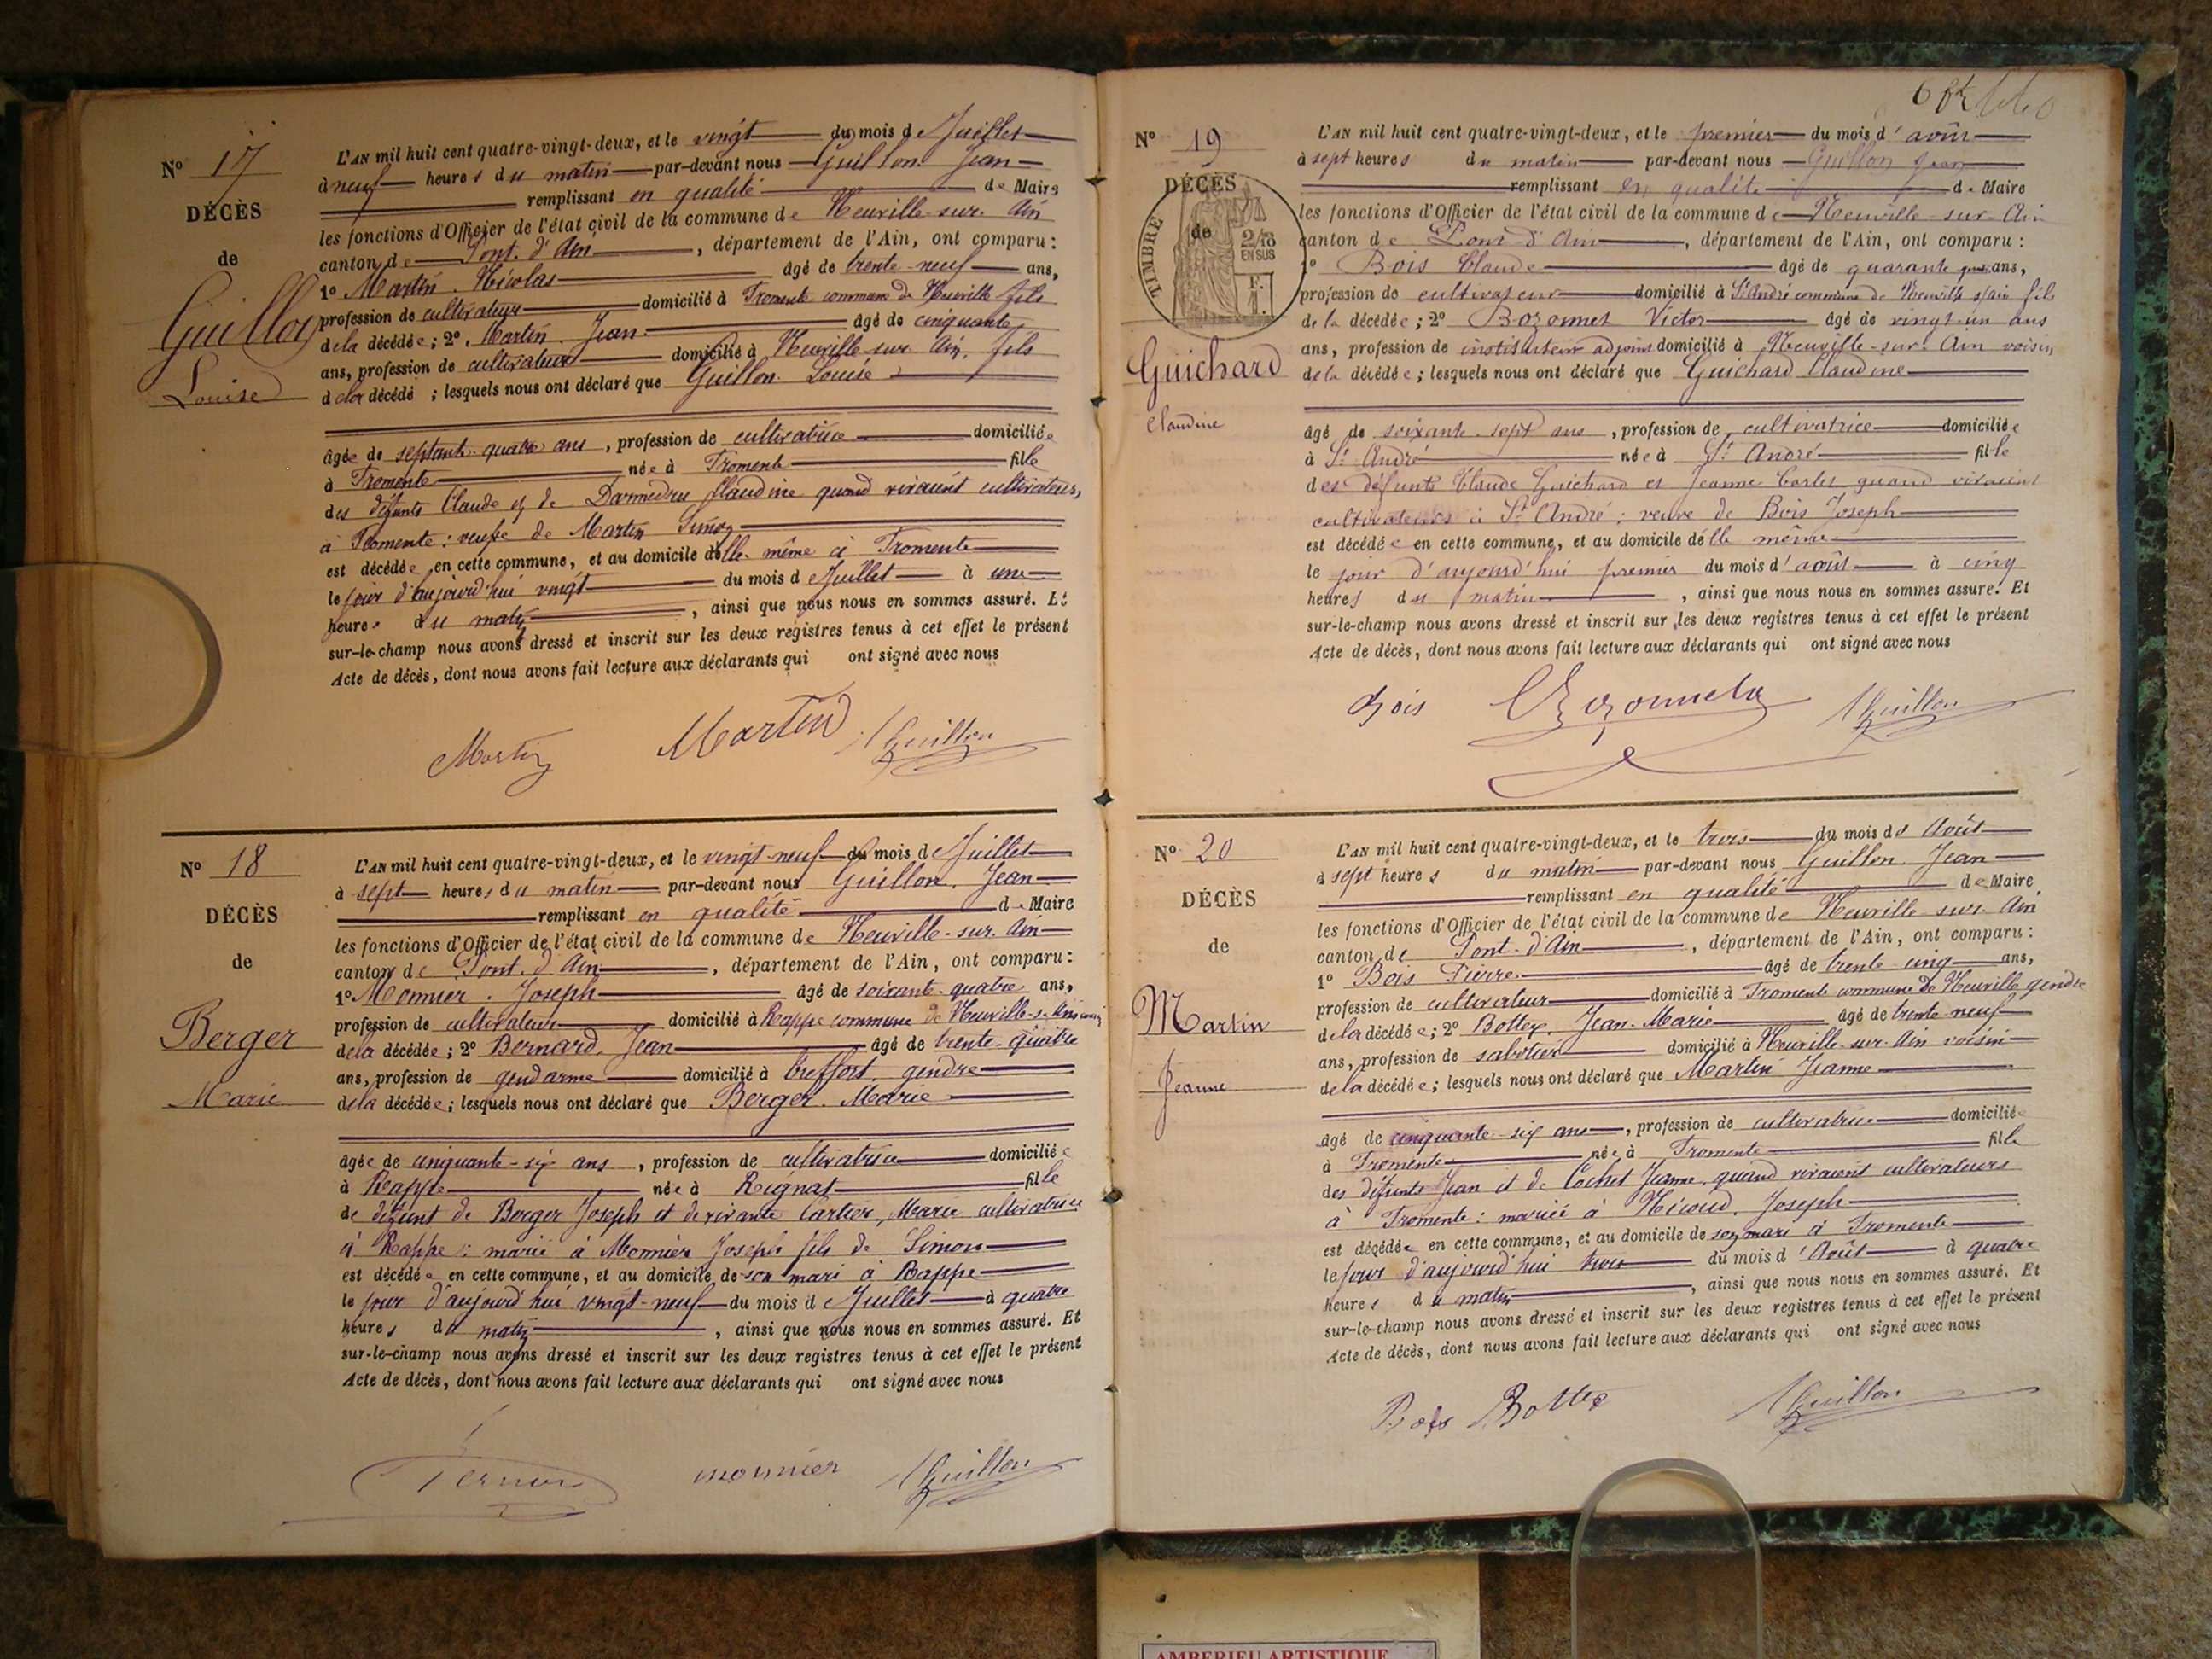 Nº 17
DÉCÈS
de
Guillon
Louise
L'AN mil huit cent quatre-vingt-deux, et le vingt du mois de Juillet
à neuf heures du matin par-devant nous Guillon Jean
remplissant en qualité de Maire
les fonctions d'Officier de l'état civil de la commune de Neuville-sur-Ain
canton de Pont-d'Ain, département de l'Ain, ont comparu :
1º Martin Nicolas âgé de trente-neuf ans,
profession de cultivateur domicilié à Fromente commune de Neuville fils
de la décédée ; 2º Martin Jean âgé de cinquante
ans, profession de cultivateur domicilié à Neuville-sur-Ain, fils
de la décédé ; lesquels nous ont déclaré que Guillon Louise
âgée de septante-quatre ans, profession de cultivatrice domiciliée
à Fromente née à Fromente fille
des défunts Claude et de Claudine quand vivaient cultivateurs,
à Fromente : veuve de Martin
est décédée en cette commune, et au domicile d'elle-même à Fromente
le jour d'aujourd'hui vingt du mois de Juillet à une
heures du matin, ainsi que nous nous en sommes assuré. Et
sur-le-champ nous avons dressé et inscrit sur les deux registres tenus à cet effet le présent
Acte de décès, dont nous avons fait lecture aux déclarants qui ont signé avec nous
Martin Martin Guillon
Nº 18
DÉCÈS
de
Berger
Marie
L'AN mil huit cent quatre-vingt-deux, et le vingt-neuf du mois de Juillet
à sept heures du matin par-devant nous Guillon Jean
remplissant en qualité de Maire
les fonctions d'Officier de l'état civil de la commune de Neuville-sur-Ain
canton de Pont-d'Ain, département de l'Ain, ont comparu :
1º Monnier Joseph âgé de soixante-quatre ans,
profession de cultivateur domicilié à Rappe commune de Neuville-s-Ain
de la décédée ; 2º Bernard Jean âgé de trente-quatre
ans, profession de gendarme domicilié à Treffort, gendre
de la décédée ; lesquels nous ont déclaré que Berger Marie
âgée de cinquante-six ans, profession de cultivatrice domiciliée
à Rappe née à Rignat fille
de défunt de Berger Joseph et de vivante Cartier Marie cultivatrice
à Rappe : marié à Monnier Joseph fils de Simon
est décédée en cette commune, et au domicile de son mari à Rappe
le jour d'aujourd'hui vingt-neuf du mois de Juillet à quatre
heures du matin, ainsi que nous nous en sommes assuré. Et
sur-le-champ nous avons dressé et inscrit sur les deux registres tenus à cet effet le présent
Acte de décès, dont nous avons fait lecture aux déclarants qui ont signé avec nous
monnier Guillon
Nº 19
DÉCÈS
de
TIMBRE
2/10
EN SUS
Guichard
Claudine
L'AN mil huit cent quatre-vingt-deux, et le premier du mois d'août
à sept heures du matin par-devant nous Guillon Jean
remplissant en qualité de Maire
les fonctions d'Officier de l'état civil de la commune de Neuville-sur-Ain
canton de Pont-d'Ain, département de l'Ain, ont comparu :
1º Bois Claude âgé de quarante ans,
profession de cultivateur domicilié à St André commune de Neuville s/ain fils
de la décédée ; 2º Bozonnet Victor âgé de vingt-un ans
ans, profession de instituteur adjoint domicilié à Neuville-sur-Ain voisin
de la décédée ; lesquels nous ont déclaré que Guichard Claudine
âgé de soixante-sept ans, profession de cultivatrice domiciliée
à St André née à St André fille
des défunts Claude Guichard et Jeanne quand vivaient
cultivateurs à St André ; veuve de Bois Joseph
est décédée en cette commune, et au domicile d'elle même
le jour d'aujourd'hui premier du mois d'août à cinq
heures du matin, ainsi que nous nous en sommes assuré. Et
sur-le-champ nous avons dressé et inscrit sur les deux registres tenus à cet effet le présent
Acte de décès, dont nous avons fait lecture aux déclarants qui ont signé avec nous
Bois Bozonnet Guillon
Nº 20
DÉCÈS
de
Martin
Jeanne
L'AN mil huit cent quatre-vingt-deux, et le trois du mois de Août
à sept heures du matin par-devant nous Guillon Jean
remplissant en qualité de Maire
les fonctions d'Officier de l'état civil de la commune de Neuville-sur-Ain
canton de Pont-d'Ain, département de l'Ain, ont comparu :
1º Bois Pierre âgé de trente-cinq ans,
profession de cultivateur domicilié à Fromente commune de Neuville gendre
de la décédée ; 2º Bottex Jean-Marie âgé de trente-neuf
ans, profession de sabotier domicilié à Neuville-sur-Ain voisin
de la décédée ; lesquels nous ont déclaré que Martin Jeanne
âgé de cinquante-six ans, profession de cultivatrice domicilié
à Fromente née à Fromente fille
des défunts Jean et de Cochet Jeanne quand vivaient cultivateurs
à Fromente : mariée à Nicoud Joseph
est décédée en cette commune, et au domicile de son mari à Fromente
le jour d'aujourd'hui trois du mois d'Août à quatre
heures du matin, ainsi que nous nous en sommes assuré. Et
sur-le-champ nous avons dressé et inscrit sur les deux registres tenus à cet effet le présent
Acte de décès, dont nous avons fait lecture aux déclarants qui ont signé avec nous
Bois Bottex Guillon
AMBERIEU ARTISTIQUE